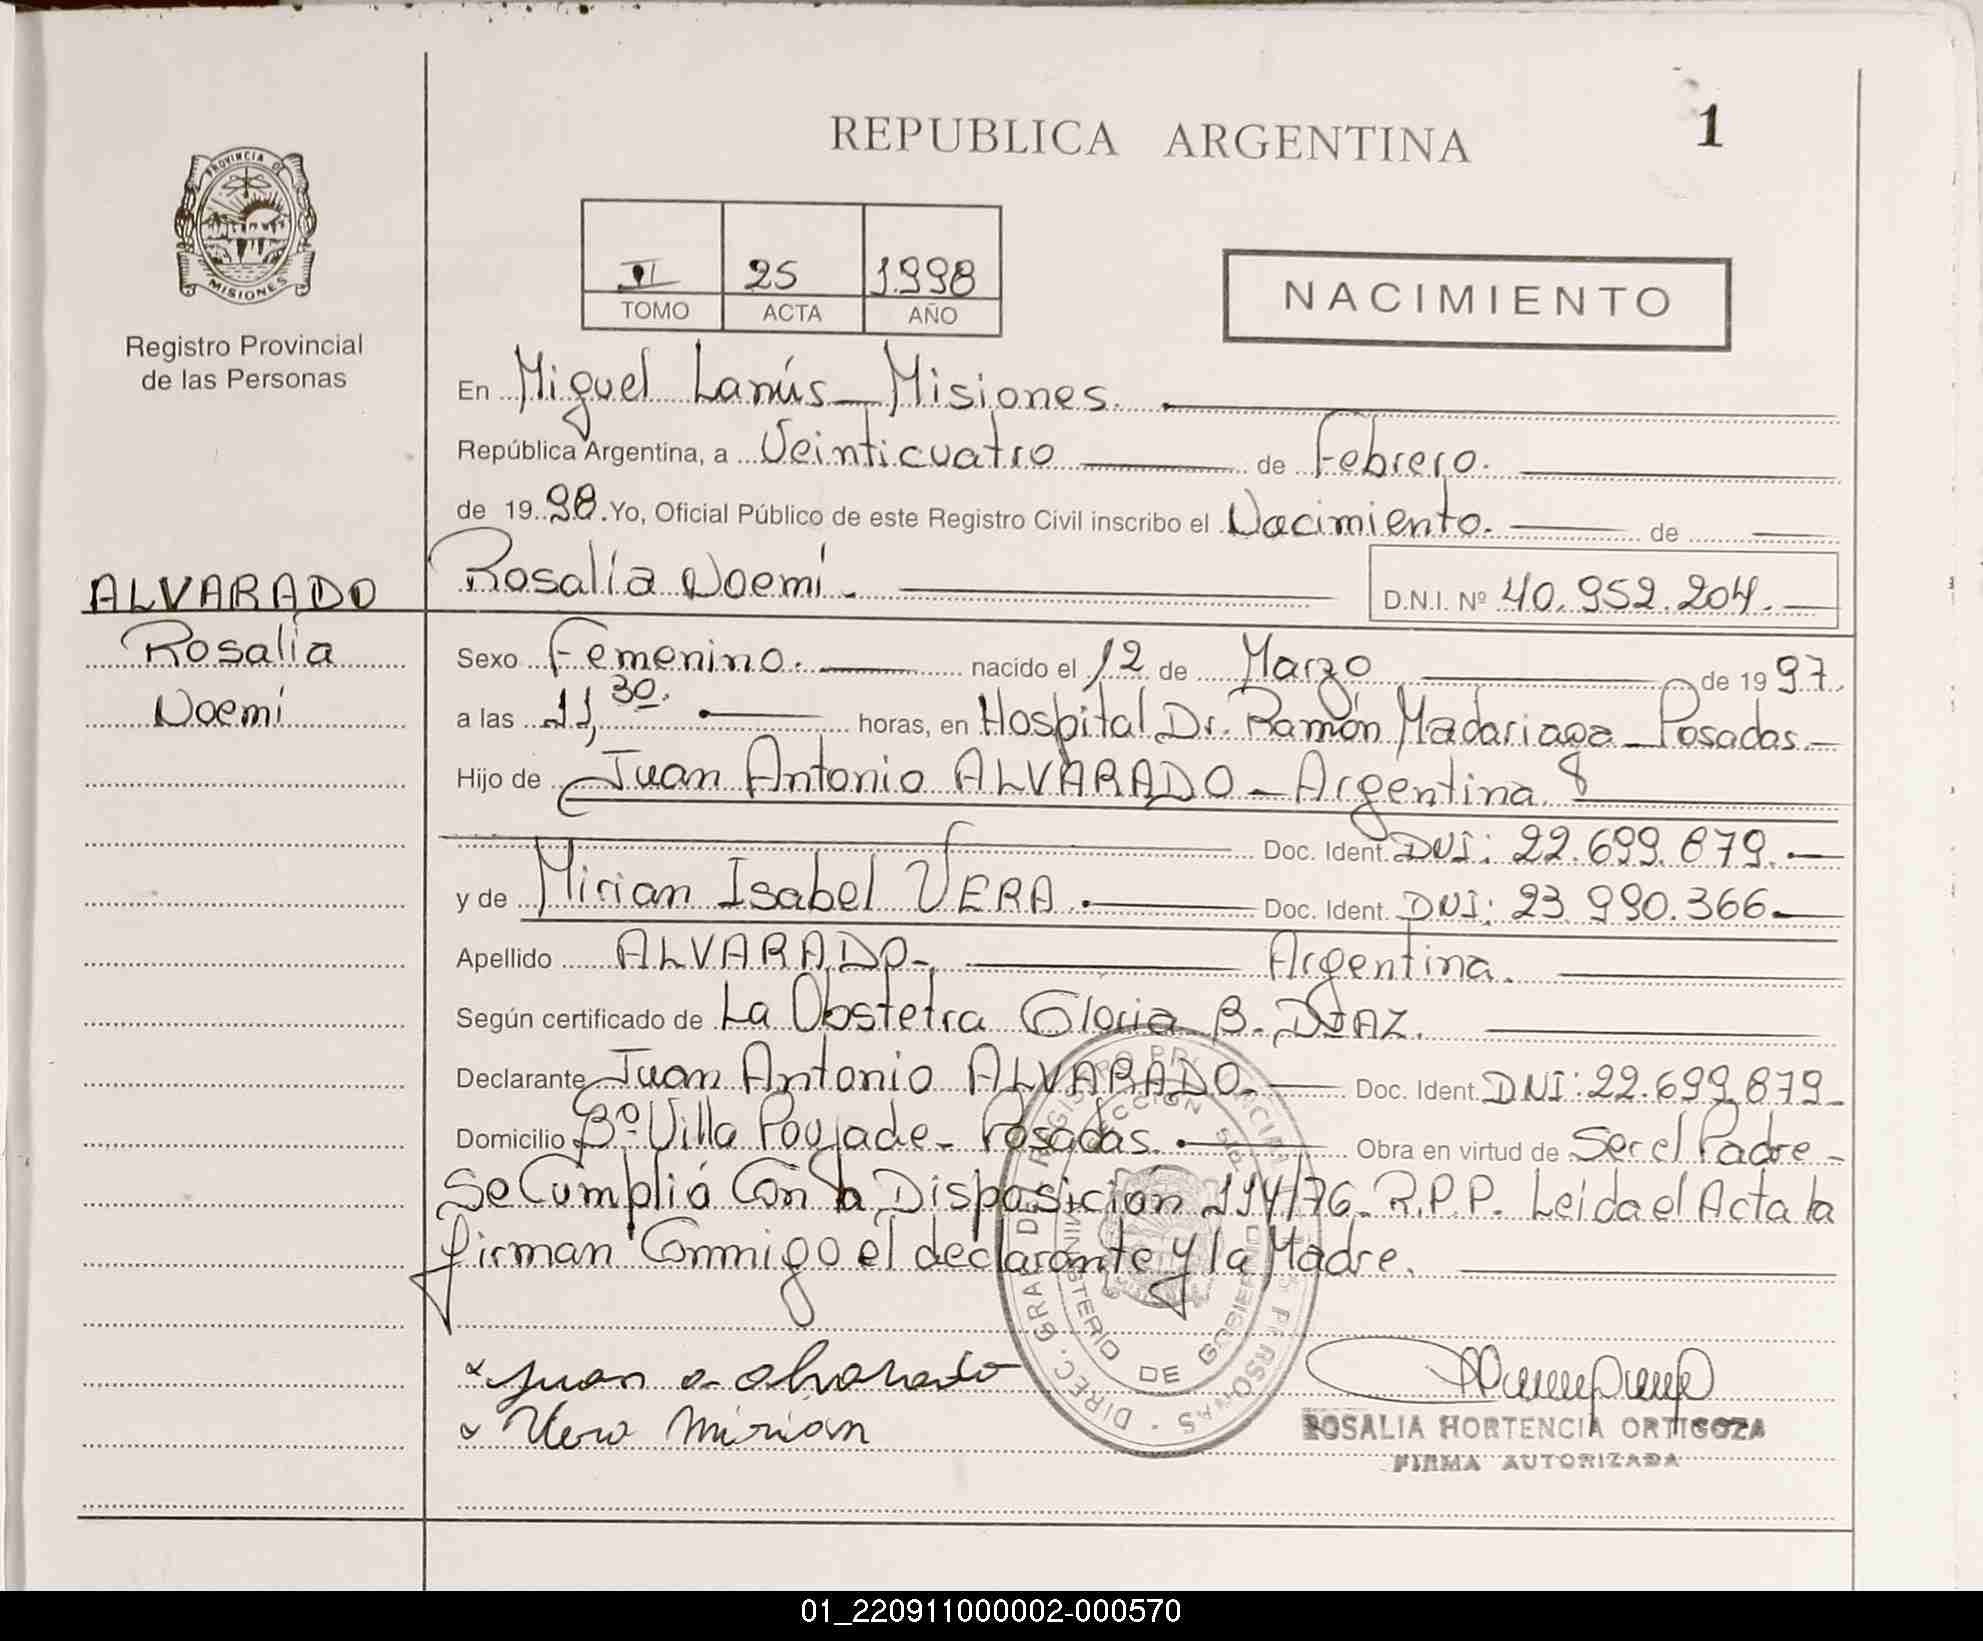 REPUBLICA ARGENTINA
1
PROVINCIA DE
MISIONES
Registro Provincial
de las Personas
II 25 1.998
TOMO ACTA AÑO
NACIMIENTO
En Miguel Lanús - Misiones.
República Argentina, a Veinticuatro de Febrero.
de 19 98. Yo, Oficial Público de este Registro Civil inscribo el Nacimiento. de
ALVARADO
Rosalía
Noemí
Rosalía Noemí. D.N.I. Nº 40.952.204.
Sexo Femenino. nacido el 12 de Marzo de 19 97.
a las 11,30. horas, en Hospital Dr. Ramón Madariaga - Posadas.
Hijo de Juan Antonio ALVARADO - Argentina
Doc. Ident. DNI: 22.699.879.
y de Mirian Isabel VERA. Doc. Ident. DNI: 23.990.366.
Apellido ALVARADO. Argentina.
Según certificado de La Obstetra Gloria B. DIAZ.
Declarante Juan Antonio ALVARADO. Doc. Ident. DNI: 22.699.879
Domicilio Bº Villa Poujade - Posadas. Obra en virtud de Ser el Padre -
Se Cumplió Con la Disposición 114/76. R.P.P. Leida el Acta la
firman Conmigo el declarante y la Madre.
MINISTERIO DE GOBIERNO
x Juan a alvarado
x Vera Mirian
ROSALIA HORTENCIA ORTIGOZA
FIRMA AUTORIZADA
01_220911000002-000570